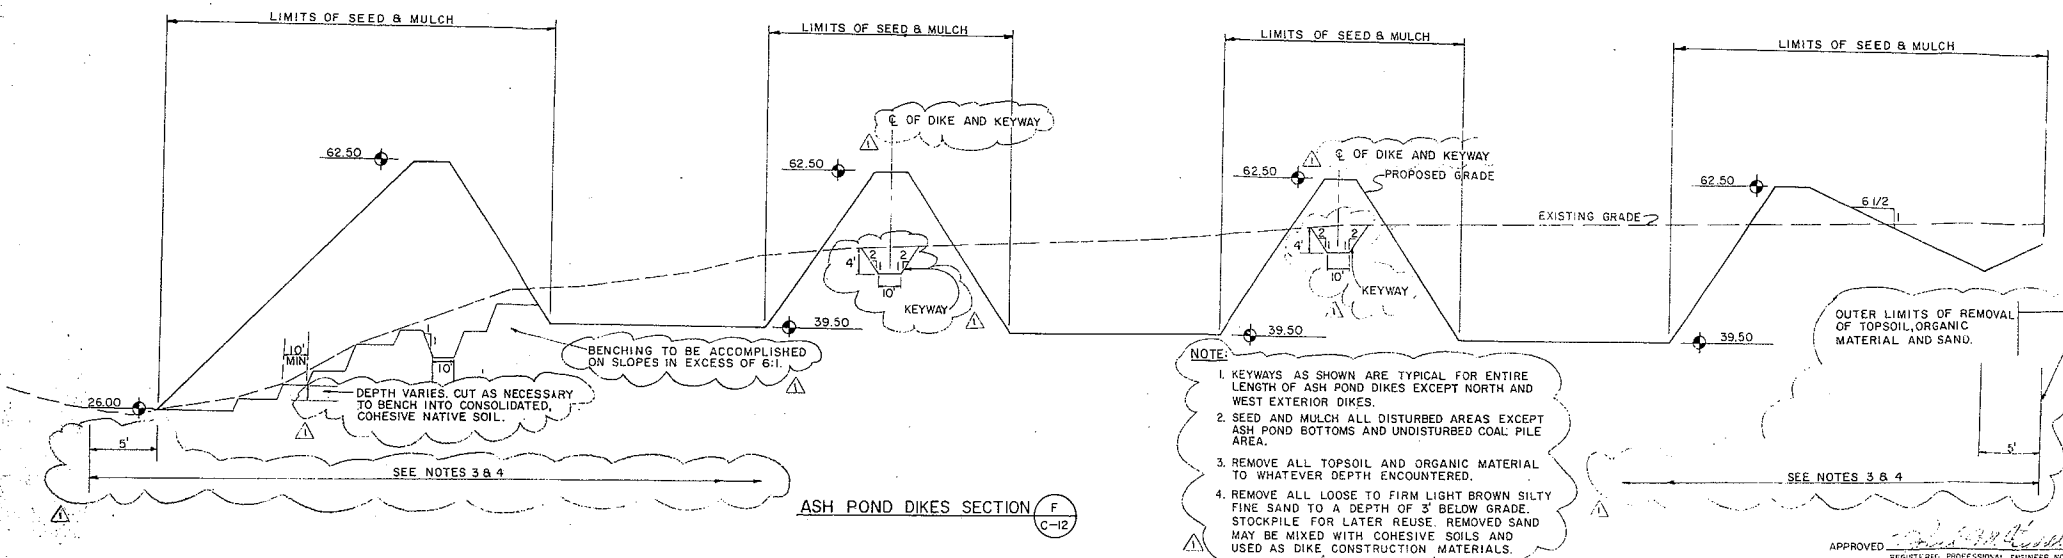 LIMITS OF SEED & MULCH
LIMITS OF SEED & MULCH
LIMITS OF SEED & MULCH
LIMITS OF SEED & MULCH
℄ OF DIKE AND KEYWAY
1
62.50
62.50
℄ OF DIKE AND KEYWAY
1
PROPOSED GRADE
62.50
62.50
6 1/2
1
EXISTING GRADE
4'
2
1
2
1
10'
KEYWAY
1
4'
2
1
2
1
10'
KEYWAY
1
39.50
39.50
39.50
10'
MIN
1
1
10'
BENCHING TO BE ACCOMPLISHED
ON SLOPES IN EXCESS OF 6:1.
1
DEPTH VARIES. CUT AS NECESSARY
TO BENCH INTO CONSOLIDATED,
COHESIVE NATIVE SOIL.
1
26.00
5'
SEE NOTES 3 & 4
1
ASH POND DIKES SECTION
F
C-12
NOTE:
1. KEYWAYS AS SHOWN ARE TYPICAL FOR ENTIRE
LENGTH OF ASH POND DIKES EXCEPT NORTH AND
WEST EXTERIOR DIKES.
2. SEED AND MULCH ALL DISTURBED AREAS EXCEPT
ASH POND BOTTOMS AND UNDISTURBED COAL PILE
AREA.
3. REMOVE ALL TOPSOIL AND ORGANIC MATERIAL
TO WHATEVER DEPTH ENCOUNTERED.
4. REMOVE ALL LOOSE TO FIRM LIGHT BROWN SILTY
FINE SAND TO A DEPTH OF 3' BELOW GRADE.
STOCKPILE FOR LATER REUSE. REMOVED SAND
MAY BE MIXED WITH COHESIVE SOILS AND
USED AS DIKE CONSTRUCTION MATERIALS.
1
OUTER LIMITS OF REMOVAL
OF TOPSOIL, ORGANIC
MATERIAL AND SAND.
5'
SEE NOTES 3 & 4
1
APPROVED
REGISTERED PROFESSIONAL ENGINEER NO